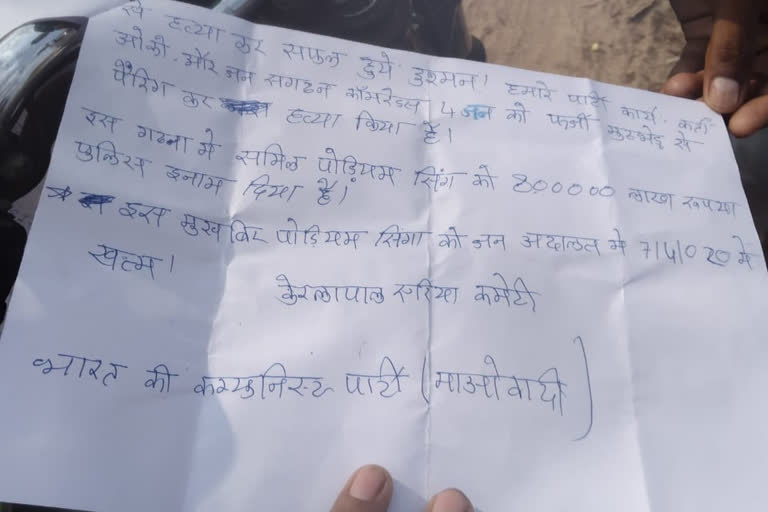 से हत्या कर सफल हुये दुश्मन। हमारे पार्टी कार्य-कर्ता-
ओको-और जन सगठन कॉमरेडस 4 जन को फर्जी मुठभेड़ से
फैरिंग कर हत्या किया है।
इस गठना मे सामिल पोड़ियम सिंगा को 800000 लाख रूपया
पुलिस इनाम दिया है।
इस मुखबिर पोड़ियम सिंगा को जन अदालत मे 7/4/020 मे
खत्म।
केरलापाल एरिया कमेटी
भारत की कम्युनिस्ट पार्टी (माओवादी)